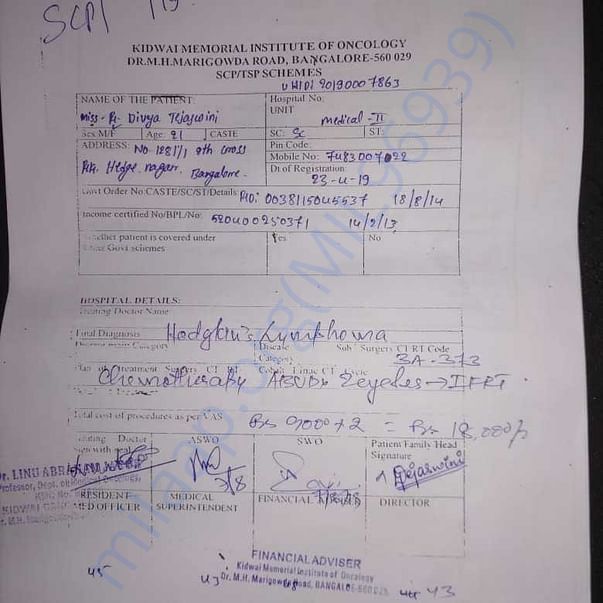 SCP/
KIDWAI MEMORIAL INSTITUTE OF ONCOLOGY
DR.M.H.MARIGOWDA ROAD, BANGALORE-560 029
SCP/TSP SCHEMES
UHID: 20190007863
NAME OF THE PATIENT: Hospital No:
Miss. Divya Tejaswini UNIT Medical-II
Sex M/F Age: 21 CASTE SC: Sc ST:
ADDRESS: No-1281/1 9th cross Pin Code:
Hegde nagar, Bangalore. Mobile No: 7483007022
Dt of Registration:
23-4-19
Govt Order No:CASTE/SC/ST/Details RD: 0038115045537 18/8/14
Income certified No/BPL/No: 520400250371 14/2/13
Whether patient is covered under Yes No
Other Govt schemes
HOSPITAL DETAILS:
Treating Doctor Name
Final Diagnosis Hodgkin's Lymphoma
Disease Category Sub Surgery CT RT Code
3A-373
Plan of Treatment Surgery CT RT
Chemotherapy ABVD 2cycles → IFRT
Total cost of procedures as per VAS Rs 9000 × 2 = Rs 18,000/-
Treating Doctor ASWO SWO Patient Family Head
sign with seal Signature
Tejaswini
Dr. LINU ABRAHAM
Professor, Dept. of Medical Oncology
KIDWAI
RESIDENT MEDICAL FINANCIAL DIRECTOR
MED OFFICER SUPERINTENDENT
FINANCIAL ADVISER
Kidwai Memorial Institute of Oncology
Dr. M.H. Marigowda Road, BANGALORE-560 029
45 43 43
milaap.org(MIL96939)